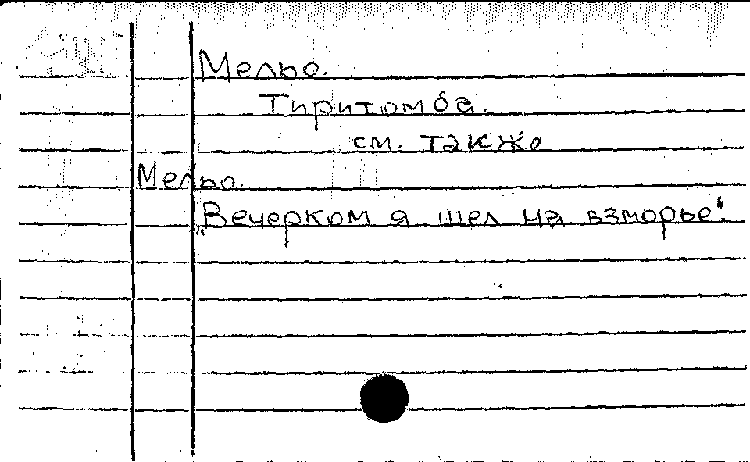 Мельо.
Тиритомба.
см. также
Мельо.
"Вечерком я шел на взморье".